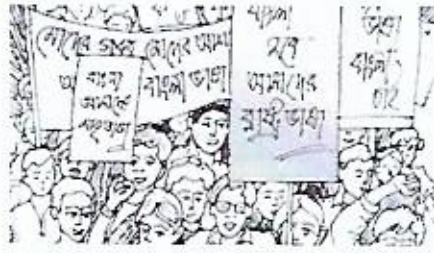 মোদের গরব মোদের আশা
বাংলা ভাষা
বাংলা
আমার
বাংলা
হবে
আমাদের
রাষ্ট্রভাষা
ভাষা
বাংলা
চাই